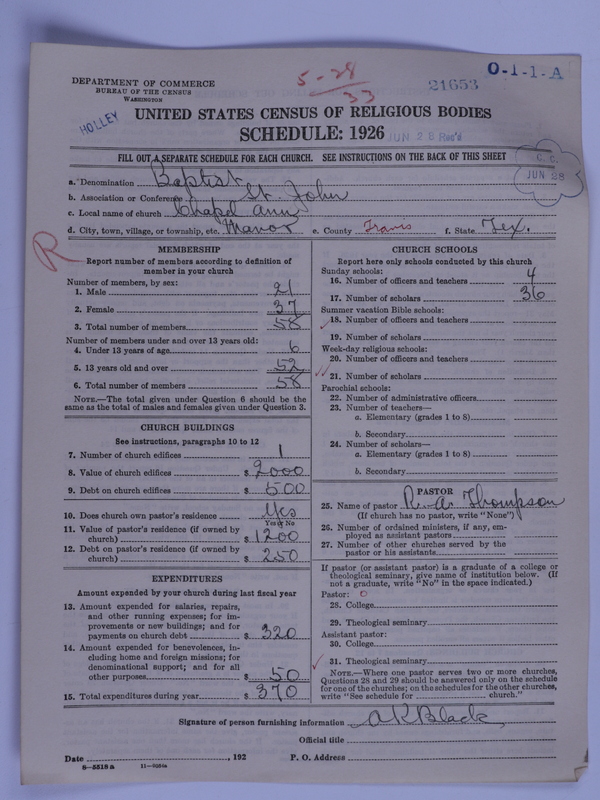 DEPARTMENT OF COMMERCE
BUREAU OF THE CENSUS
WASHINGTON
5-28
33
21653
O-1-1-A
HOLLEY
UNITED STATES CENSUS OF RELIGIOUS BODIES
SCHEDULE: 1926
JUN 28 Rec'd
C. C.
JUN 28
FILL OUT A SEPARATE SCHEDULE FOR EACH CHURCH. SEE INSTRUCTIONS ON THE BACK OF THIS SHEET
a. Denomination Baptist
b. Association or Conference St. John
c. Local name of church Chapel Ann
d. City, town, village, or township, etc. Manor e. County Travis f. State Tex.
R
MEMBERSHIP
Report number of members according to definition of member in your church
Number of members, by sex:
1. Male 21
2. Female 37
3. Total number of members 58
Number of members under and over 13 years old:
4. Under 13 years of age 6
5. 13 years old and over 52
6. Total number of members 58
NOTE.—The total given under Question 6 should be the same as the total of males and females given under Question 3.
CHURCH BUILDINGS
See instructions, paragraphs 10 to 12
7. Number of church edifices 1
8. Value of church edifices $ 2000
9. Debt on church edifices $ 500
10. Does church own pastor's residence Yes
Yes or No
11. Value of pastor's residence (if owned by church) $ 1200
12. Debt on pastor's residence (if owned by church) $ 250
EXPENDITURES
Amount expended by your church during last fiscal year
13. Amount expended for salaries, repairs, and other running expenses; for improvements or new buildings; and for payments on church debt $ 320
14. Amount expended for benevolences, including home and foreign missions; for denominational support; and for all other purposes $ 50
15. Total expenditures during year $ 370
CHURCH SCHOOLS
Report here only schools conducted by this church
Sunday schools:
16. Number of officers and teachers 4
17. Number of scholars 36
Summer vacation Bible schools:
18. Number of officers and teachers
19. Number of scholars
Week-day religious schools:
20. Number of officers and teachers
21. Number of scholars
Parochial schools:
22. Number of administrative officers
23. Number of teachers—
a. Elementary (grades 1 to 8)
b. Secondary
24. Number of scholars—
a. Elementary (grades 1 to 8)
b. Secondary
PASTOR
25. Name of pastor R. A. Thompson
(If church has no pastor, write "None")
26. Number of ordained ministers, if any, employed as assistant pastors
27. Number of other churches served by the pastor or his assistants
If pastor (or assistant pastor) is a graduate of a college or theological seminary, give name of institution below. (If not a graduate, write "No" in the space indicated.)
Pastor: O
28. College
29. Theological seminary
Assistant pastor:
30. College
31. Theological seminary
NOTE.—Where one pastor serves two or more churches, Questions 28 and 29 should be answered only on the schedule for one of the churches; on the schedules for the other churches, write "See schedule for church."
Signature of person furnishing information A K Black
Official title
Date , 192 P. O. Address
8-5518a 11-9084a